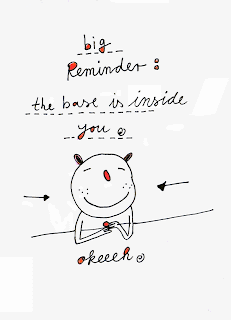 big
Reminder:
the base is inside
you
okeeeh